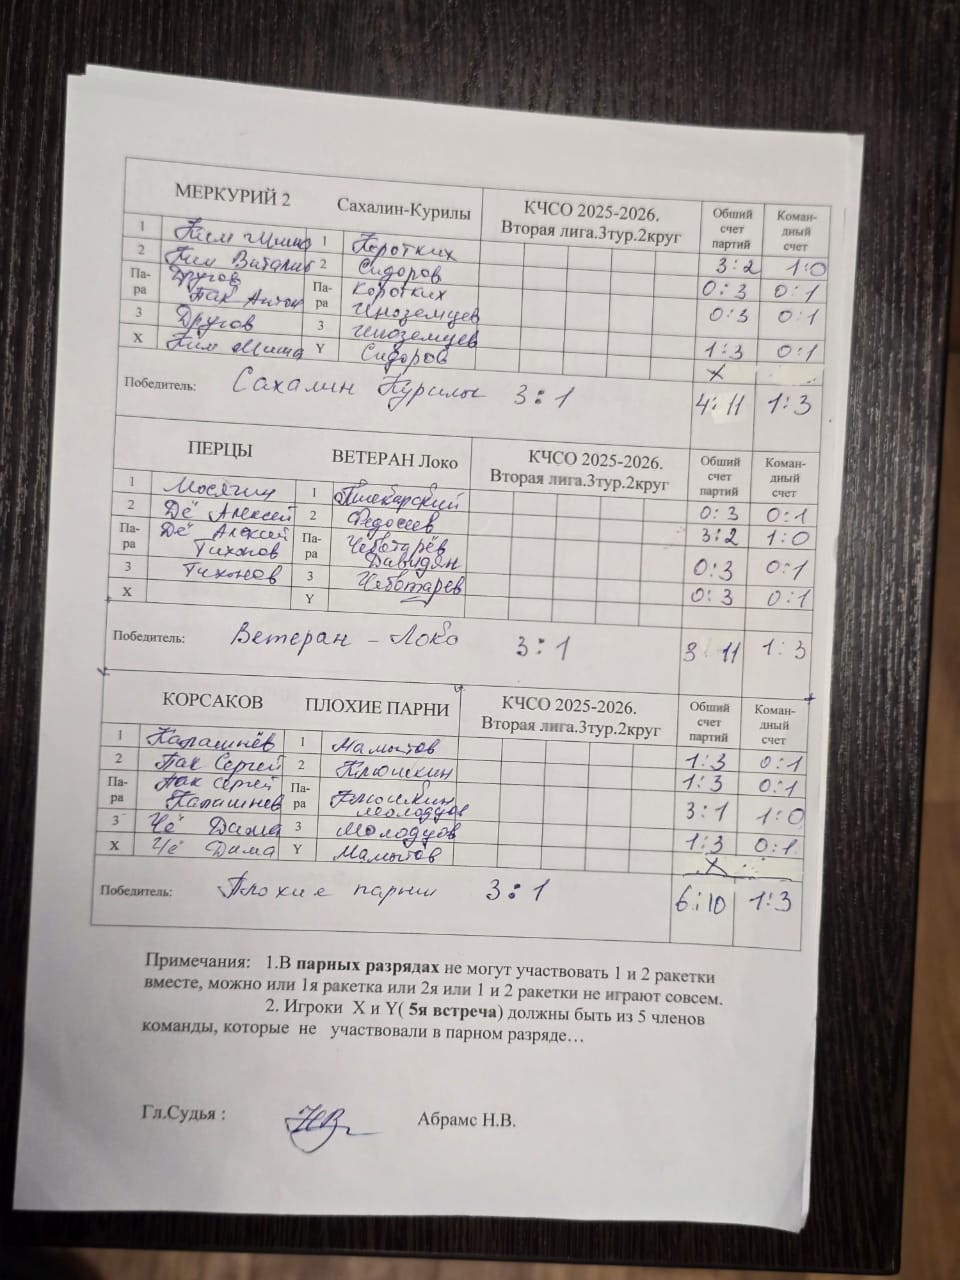 МЕРКУРИЙ 2 Сахалин-Курилы КЧСО 2025-2026. Вторая лига.3тур.2круг Общий счет партий Коман-дный счет
1 Ким Миша 1 Коротких 3:2 1:0
2 Ким Виталий 2 Сидоров 0:3 0:1
Па-ра Другов Пак Антон Па-ра Коротких Иноземцев 0:3 0:1
3 Другов 3 Иноземцев 1:3 0:1
X Ким Миша Y Сидоров X
Победитель: Сахалин Курилы 3:1 4:11 1:3
ПЕРЦЫ ВЕТЕРАН Локо КЧСО 2025-2026. Вторая лига.3тур.2круг Общий счет партий Коман-дный счет
1 Мосягин 1 Пшекарский 0:3 0:1
2 Дё Алексей 2 Федосеев 3:2 1:0
Па-ра Дё Алексей Тихонов Па-ра Чеботарёв Давидян 0:3 0:1
3 Тихонов 3 Чеботарев 0:3 0:1
X Y
Победитель: Ветеран - Локо 3:1 3 11 1:3
КОРСАКОВ ПЛОХИЕ ПАРНИ КЧСО 2025-2026. Вторая лига.3тур.2круг Общий счет партий Коман-дный счет
1 Калашнёв 1 Мамытов 1:3 0:1
2 Пак Сергей 2 Клюшкин 1:3 0:1
Па-ра Пак Сергей Калашнев Па-ра Клюшкин Молодцов 3:1 1:0
3 Чё Дима 3 Молодцов 1:3 0:1
X Чё Дима Y Мамытов X
Победитель: Плохие парни 3:1 6:10 1:3
Примечания: 1.В парных разрядах не могут участвовать 1 и 2 ракетки
вместе, можно или 1я ракетка или 2я или 1 и 2 ракетки не играют совсем.
2. Игроки X и Y( 5я встреча) должны быть из 5 членов
команды, которые не участвовали в парном разряде…
Гл.Судья : Абрамс Н.В.